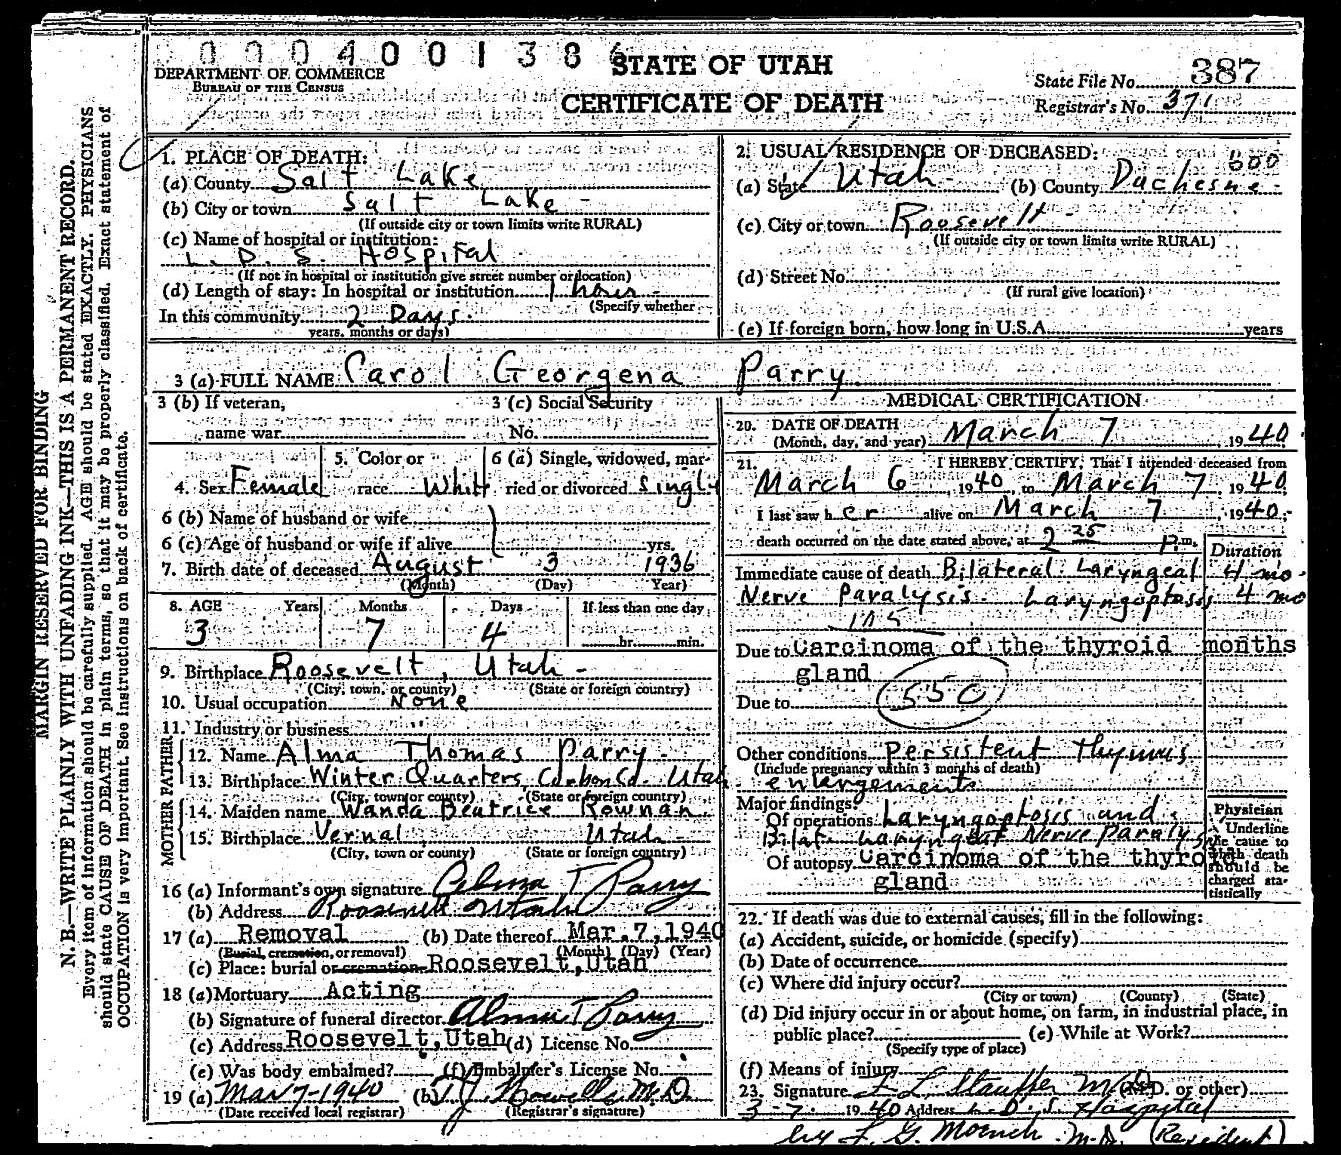 0004001386
STATE OF UTAH
CERTIFICATE OF DEATH
DEPARTMENT OF COMMERCE
BUREAU OF THE CENSUS
State File No. 387
Registrar's No. 371
MARGIN RESERVED FOR BINDING
N. B.—WRITE PLAINLY WITH UNFADING INK—THIS IS A PERMANENT RECORD.
Every item of information should be carefully supplied. AGE should be stated EXACTLY. PHYSICIANS
should state CAUSE OF DEATH in plain terms, so that it may be properly classified. Exact statement of
OCCUPATION is very important. See instructions on back of certificate.
1. PLACE OF DEATH:
(a) County Salt Lake
(b) City or town Salt Lake -
(If outside city or town limits write RURAL)
(c) Name of hospital or institution:
L. D. S. Hospital
(If not in hospital or institution give street number or location)
(d) Length of stay: In hospital or institution 1 hour -
(Specify whether
In this community 2 Days.
years, months or days)
2. USUAL RESIDENCE OF DECEASED:
600
(a) State Utah (b) County Duchesne -
(c) City or town Roosevelt -
(If outside city or town limits write RURAL)
(d) Street No.
(If rural give location)
(e) If foreign born, how long in U.S.A. years
3 (a) FULL NAME Carol Georgena Parry.
3 (b) If veteran,
name war
3 (c) Social Security
No.
4. Sex Female
5. Color or
race White
6 (a) Single, widowed, mar-
ried or divorced Single
6 (b) Name of husband or wife
6 (c) Age of husband or wife if alive yrs.
7. Birth date of deceased August 3 1936
(Month) (Day) Year)
8. AGE Years Months Days If less than one day
3 7 4 hr. min.
9. Birthplace Roosevelt, Utah -
(City, town, or county) (State or foreign country)
10. Usual occupation None
11. Industry or business
FATHER
12. Name Alma Thomas Parry -
13. Birthplace Winter Quarters, Carbon Co. Utah
(City, town or county) (State or foreign country)
MOTHER
14. Maiden name Wanda Beatrice Rownan.
15. Birthplace Vernal Utah
(City, town or county) (State or foreign country)
16 (a) Informant's own signature Alma T Parry
(b) Address Roosevelt Utah
17 (a) Removal (b) Date thereof Mar.7,1940
(Burial, cremation, or removal) (Month) (Day) (Year)
(c) Place: burial or cremation Roosevelt,Utah
18 (a) Mortuary Acting
(b) Signature of funeral director Alma T Parry
(c) Address Roosevelt,Utah (d) License No.
(e) Was body embalmed? (f) Embalmer's License No.
19 (a) Mar 7-1940 (b) T J Howells M.D.
(Date received local registrar) (Registrar's signature)
MEDICAL CERTIFICATION
20. DATE OF DEATH
(Month, day, and year) March 7 1940.
21. I HEREBY CERTIFY, That I attended deceased from
March 6, 1940, to March 7, 1940
I last saw her alive on March 7, 1940;
death occurred on the date stated above, at 2 25 P.m.
Duration
Immediate cause of death Bilateral Laryngeal 4 mo.
Nerve Paralysis. Laryngoptosis 4 mo
105
Due to Carcinoma of the thyroid months
gland
550
Due to
Other conditions Persistent thymus
(Include pregnancy within 3 months of death)
enlargements
Major findings:
Of operations Laryngoptosis and
Bilat. Laryngeal Nerve Paralysis
Of autopsy Carcinoma of the thyroid
gland
Physician
Underline
the cause to
which death
should be
charged sta-
tistically
22. If death was due to external causes, fill in the following:
(a) Accident, suicide, or homicide (specify)
(b) Date of occurrence
(c) Where did injury occur?
(City or town) (County) (State)
(d) Did injury occur in or about home, on farm, in industrial place, in
public place? (e) While at Work?
(Specify type of place)
(f) Means of injury
23. Signature F L Stauffer M.D. (M.D. or other)
3-7. 1940 Address L. D. S. Hospital
by F. G. Moench. M.D. (Resident)